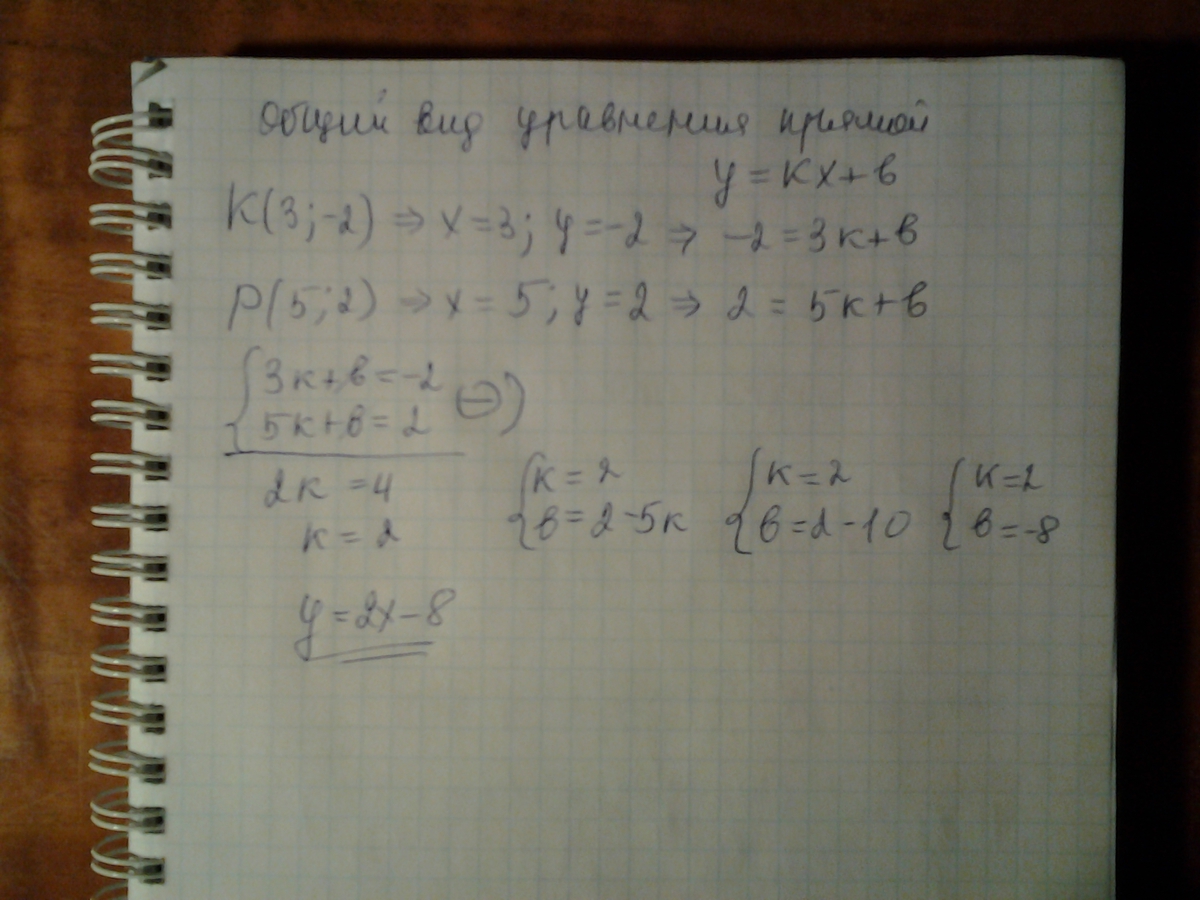 Общий вид уравнения прямой
y = kx + b
K(3;-2) ⇒ x = 3; y = -2 ⇒ -2 = 3k + b
P(5;2) ⇒ x = 5; y = 2 ⇒ 2 = 5k + b
{3k + b = -2
{5k + b = 2 (-))
2k = 4
k = 2
{k = 2
{b = 2 - 5k
{k = 2
{b = 2 - 10
{k = 2
{b = -8
y = 2x - 8